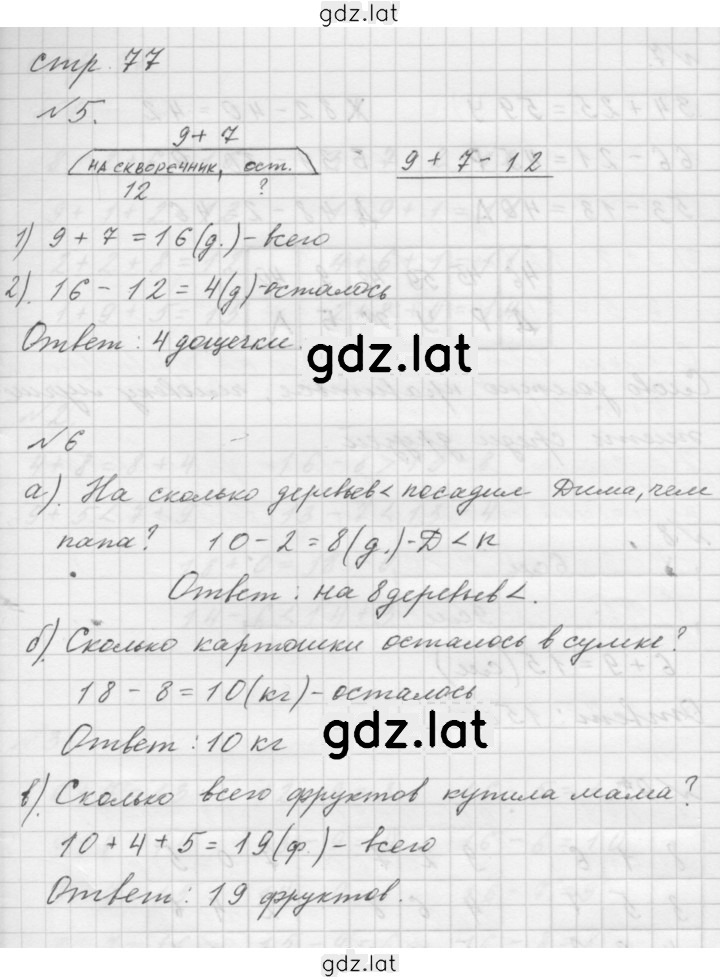 gdz.lat
стр. 77
№5.
9+ 7
на скворечник, ост.
12 ?
9 + 7 - 12
1) 9 + 7 = 16(д.)-всего
2). 16 - 12 = 4(д)-осталось
Ответ: 4 дощечки.
gdz.lat
№6
а). На сколько деревьев < посадил Дима, чем
папа? 10 - 2 = 8(д.)-Д < п
Ответ: на 8 деревьев <.
б). Сколько картошки осталось в сумке?
18 - 8 = 10(кг)-осталось
Ответ: 10 кг
gdz.lat
в). Сколько всего фруктов купила мама?
10 + 4 + 5 = 19(ф.)- всего
Ответ: 19 фруктов.
gdz.lat